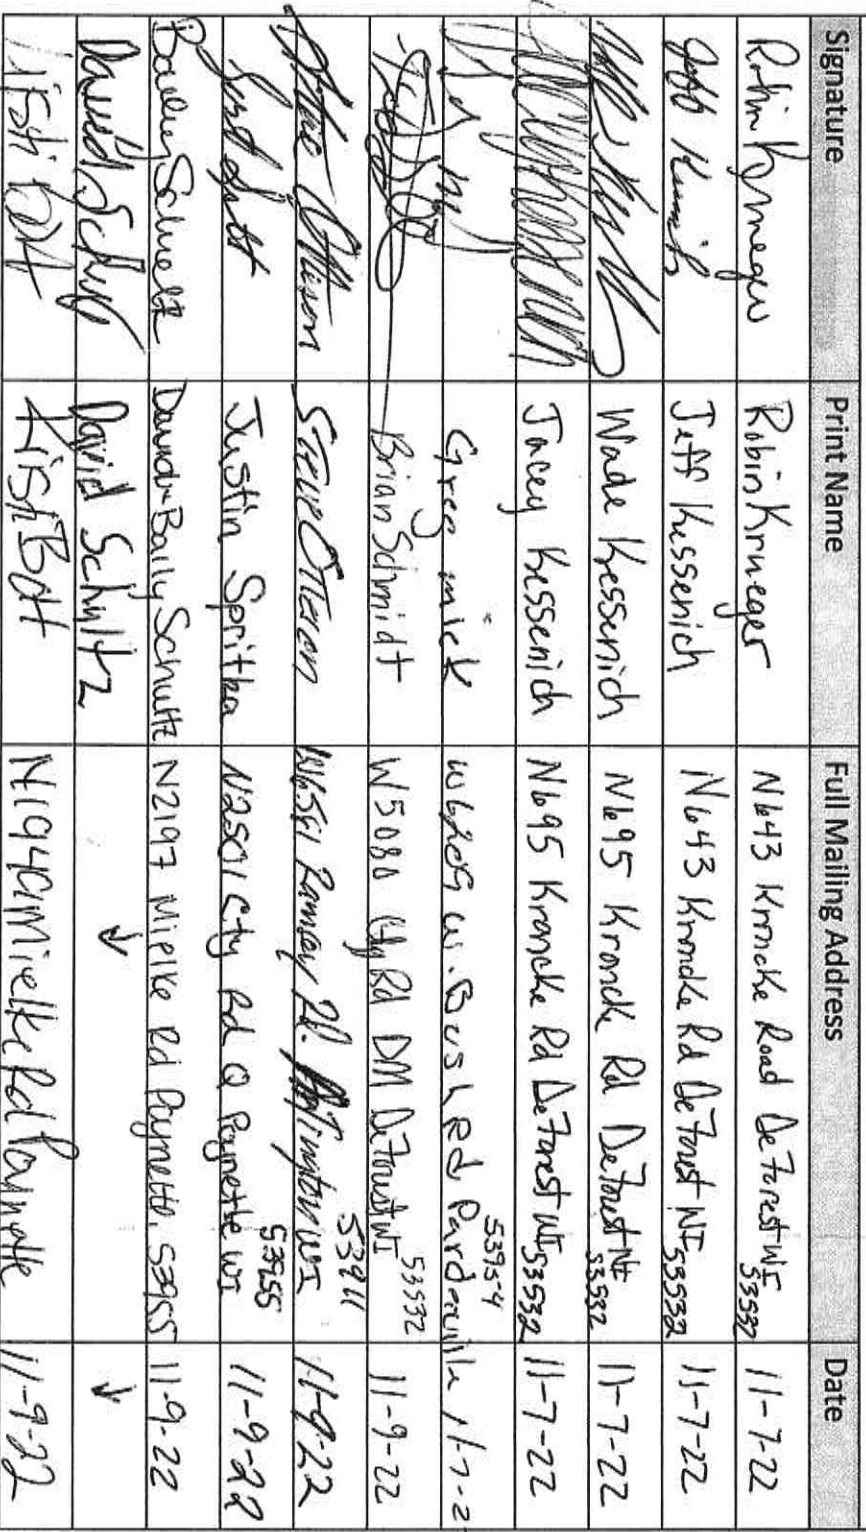 Signature Print Name Full Mailing Address Date
Robin Krueger Robin Krueger N643 Kroncke Road DeForest WI 53532 11-7-22
Jeff Kessenich N643 Kroncke Rd DeForest WI 53532 11-7-22
Wade Kessenich N695 Kroncke Rd DeForest WI 53532 11-7-22
Jacey Kessenich N695 Kroncke Rd DeForest WI 53532 11-7-22
Greg mick W6209 W. Bush Rd Pardeeville 53954 11-7-2
Brian Schmidt W5080 Cty Rd DM DeForest WI 53532 11-9-22
Steve Otteson Steve Otteson W6581 Ramsey Rd. Arlington WI 53911 11-9-22
Justin Spritka N2501 Cty Rd Q Poynette WI 53955 11-9-22
Bailey Schultz David + Baily Schultz N2197 Mielke Rd Poynette, 53955 11-9-22
David Schultz David Schultz ↓ ↓
Kishi Bott Kishi Bott N1940 Mielke Rd Poynette 11-9-22